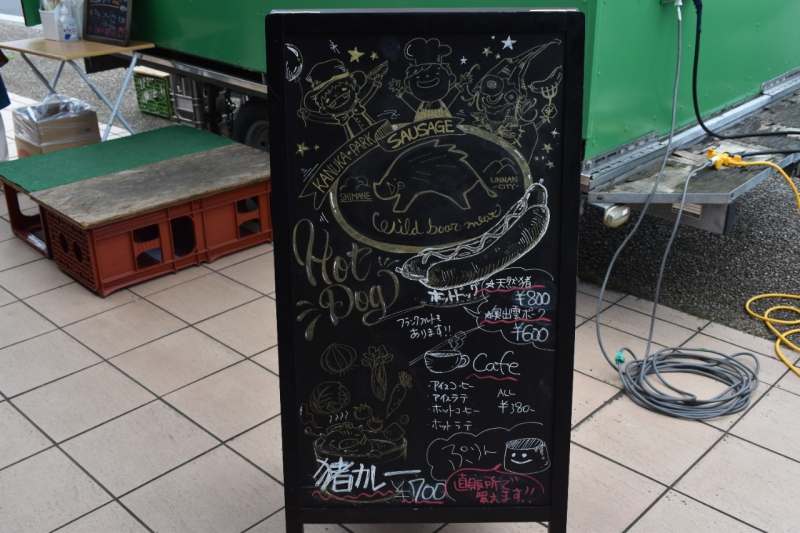 KANUKA★PARK
SAUSAGE
SHIMANE
UNNAN
-CITY-
Wild boar meat
Hot
Dog
ホットドッグ
★天然猪
¥800
★奥出雲ポーク
¥600
フランクフルトも
あります!!
Cafe
・アイスコーヒー
アイスラテ
・ホットコーヒー
・ホットラテ
ALL
¥380-
ぷりん
直販所で
買えます!!
猪カレー
¥700